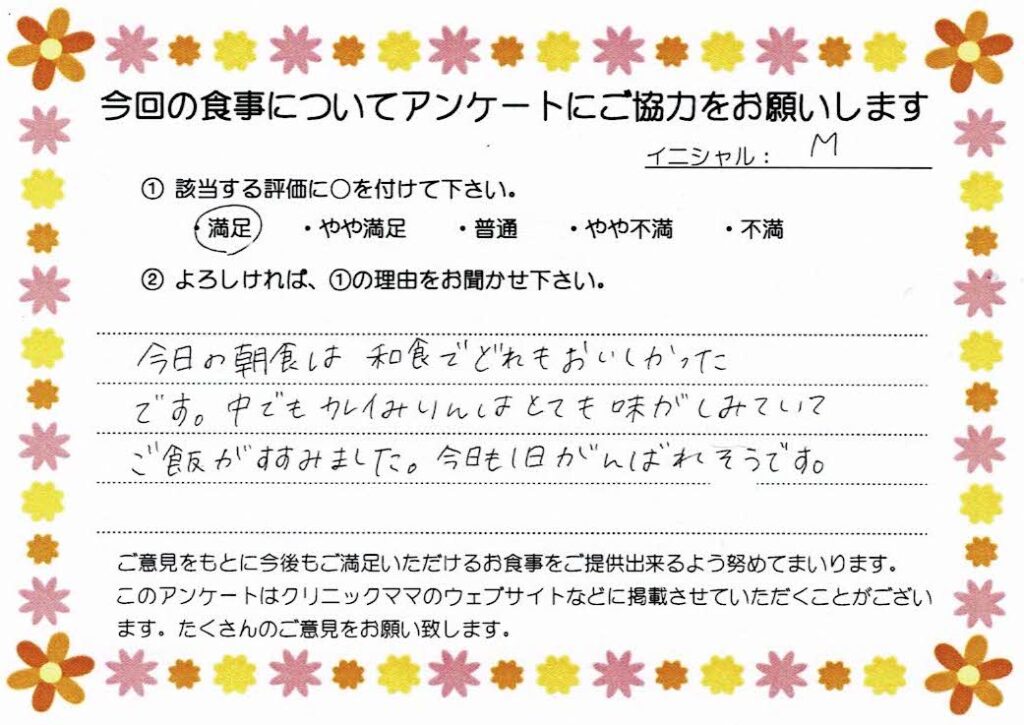 今回の食事についてアンケートにご協力をお願いします
イニシャル： M
① 該当する評価に〇を付けて下さい。
・満足 ・やや満足 ・普通 ・やや不満 ・不満
② よろしければ、①の理由をお聞かせ下さい。
今日の朝食は 和食でどれもおいしかった
です。中でも カレイみりんはとても 味がしみていて
ご飯がすすみました。今日も1日がんばれそうです。
ご意見をもとに今後もご満足いただけるお食事をご提供出来るよう努めてまいります。
このアンケートはクリニックママのウェブサイトなどに掲載させていただくことがござい
ます。たくさんのご意見をお願い致します。